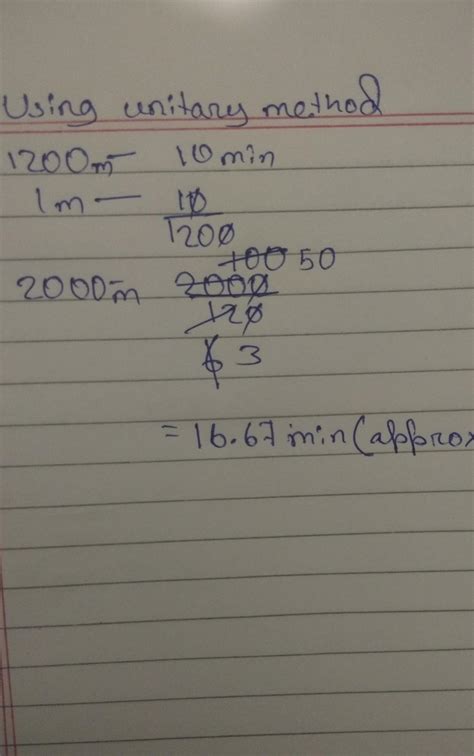 Using unitary method
1200m - 10 min
1m - 10
1200
100 50
2000m - 2000
120
6 3
= 16.67 min (approx